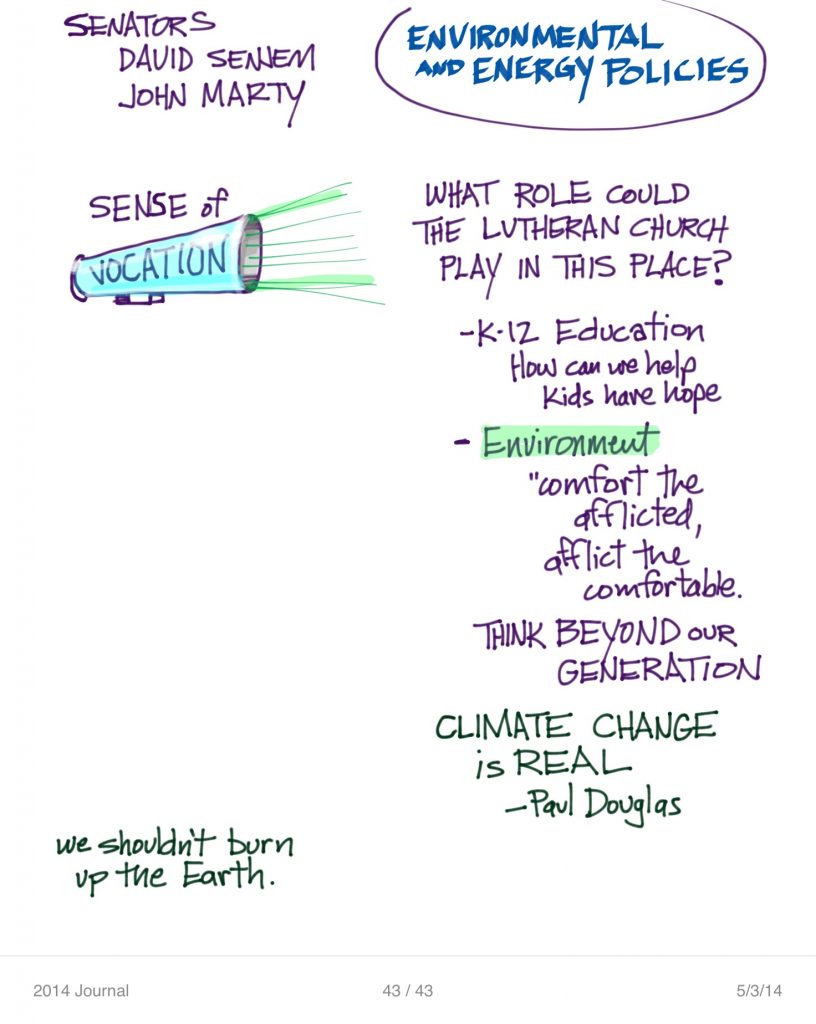 SENATORS
DAVID SENJEM
JOHN MARTY
ENVIRONMENTAL
AND ENERGY POLICIES
SENSE of
VOCATION
WHAT ROLE COULD
THE LUTHERAN CHURCH
PLAY IN THIS PLACE?
-K-12 Education
How can we help
Kids have hope
- Environment
"comfort the
afflicted,
afflict the
comfortable.
THINK BEYOND OUR
GENERATION
CLIMATE CHANGE
is REAL
-Paul Douglas
we shouldn't burn
up the Earth.
2014 Journal
43 / 43
5/3/14